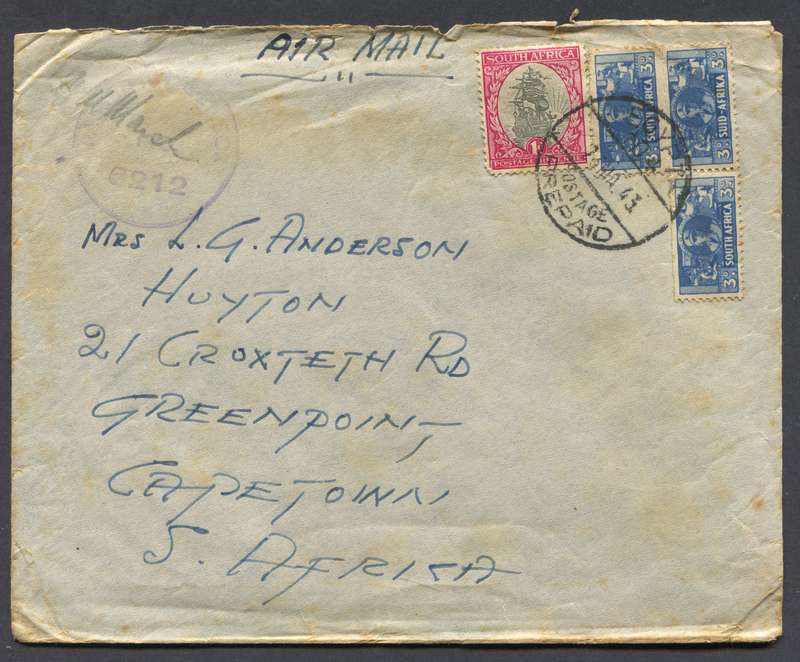 AIR MAIL
SOUTH AFRICA
POSTAGE
SOUTH AFRICA
3D
SUID-AFRIKA
3D
SOUTH AFRICA
3D
EGYPT
43
POSTAGE
PREPAID
6212
MRS L. G. ANDERSON
HUYTON
21 CROXTETH RD
GREENPOINT,
CAPETOWN
S. AFRICA